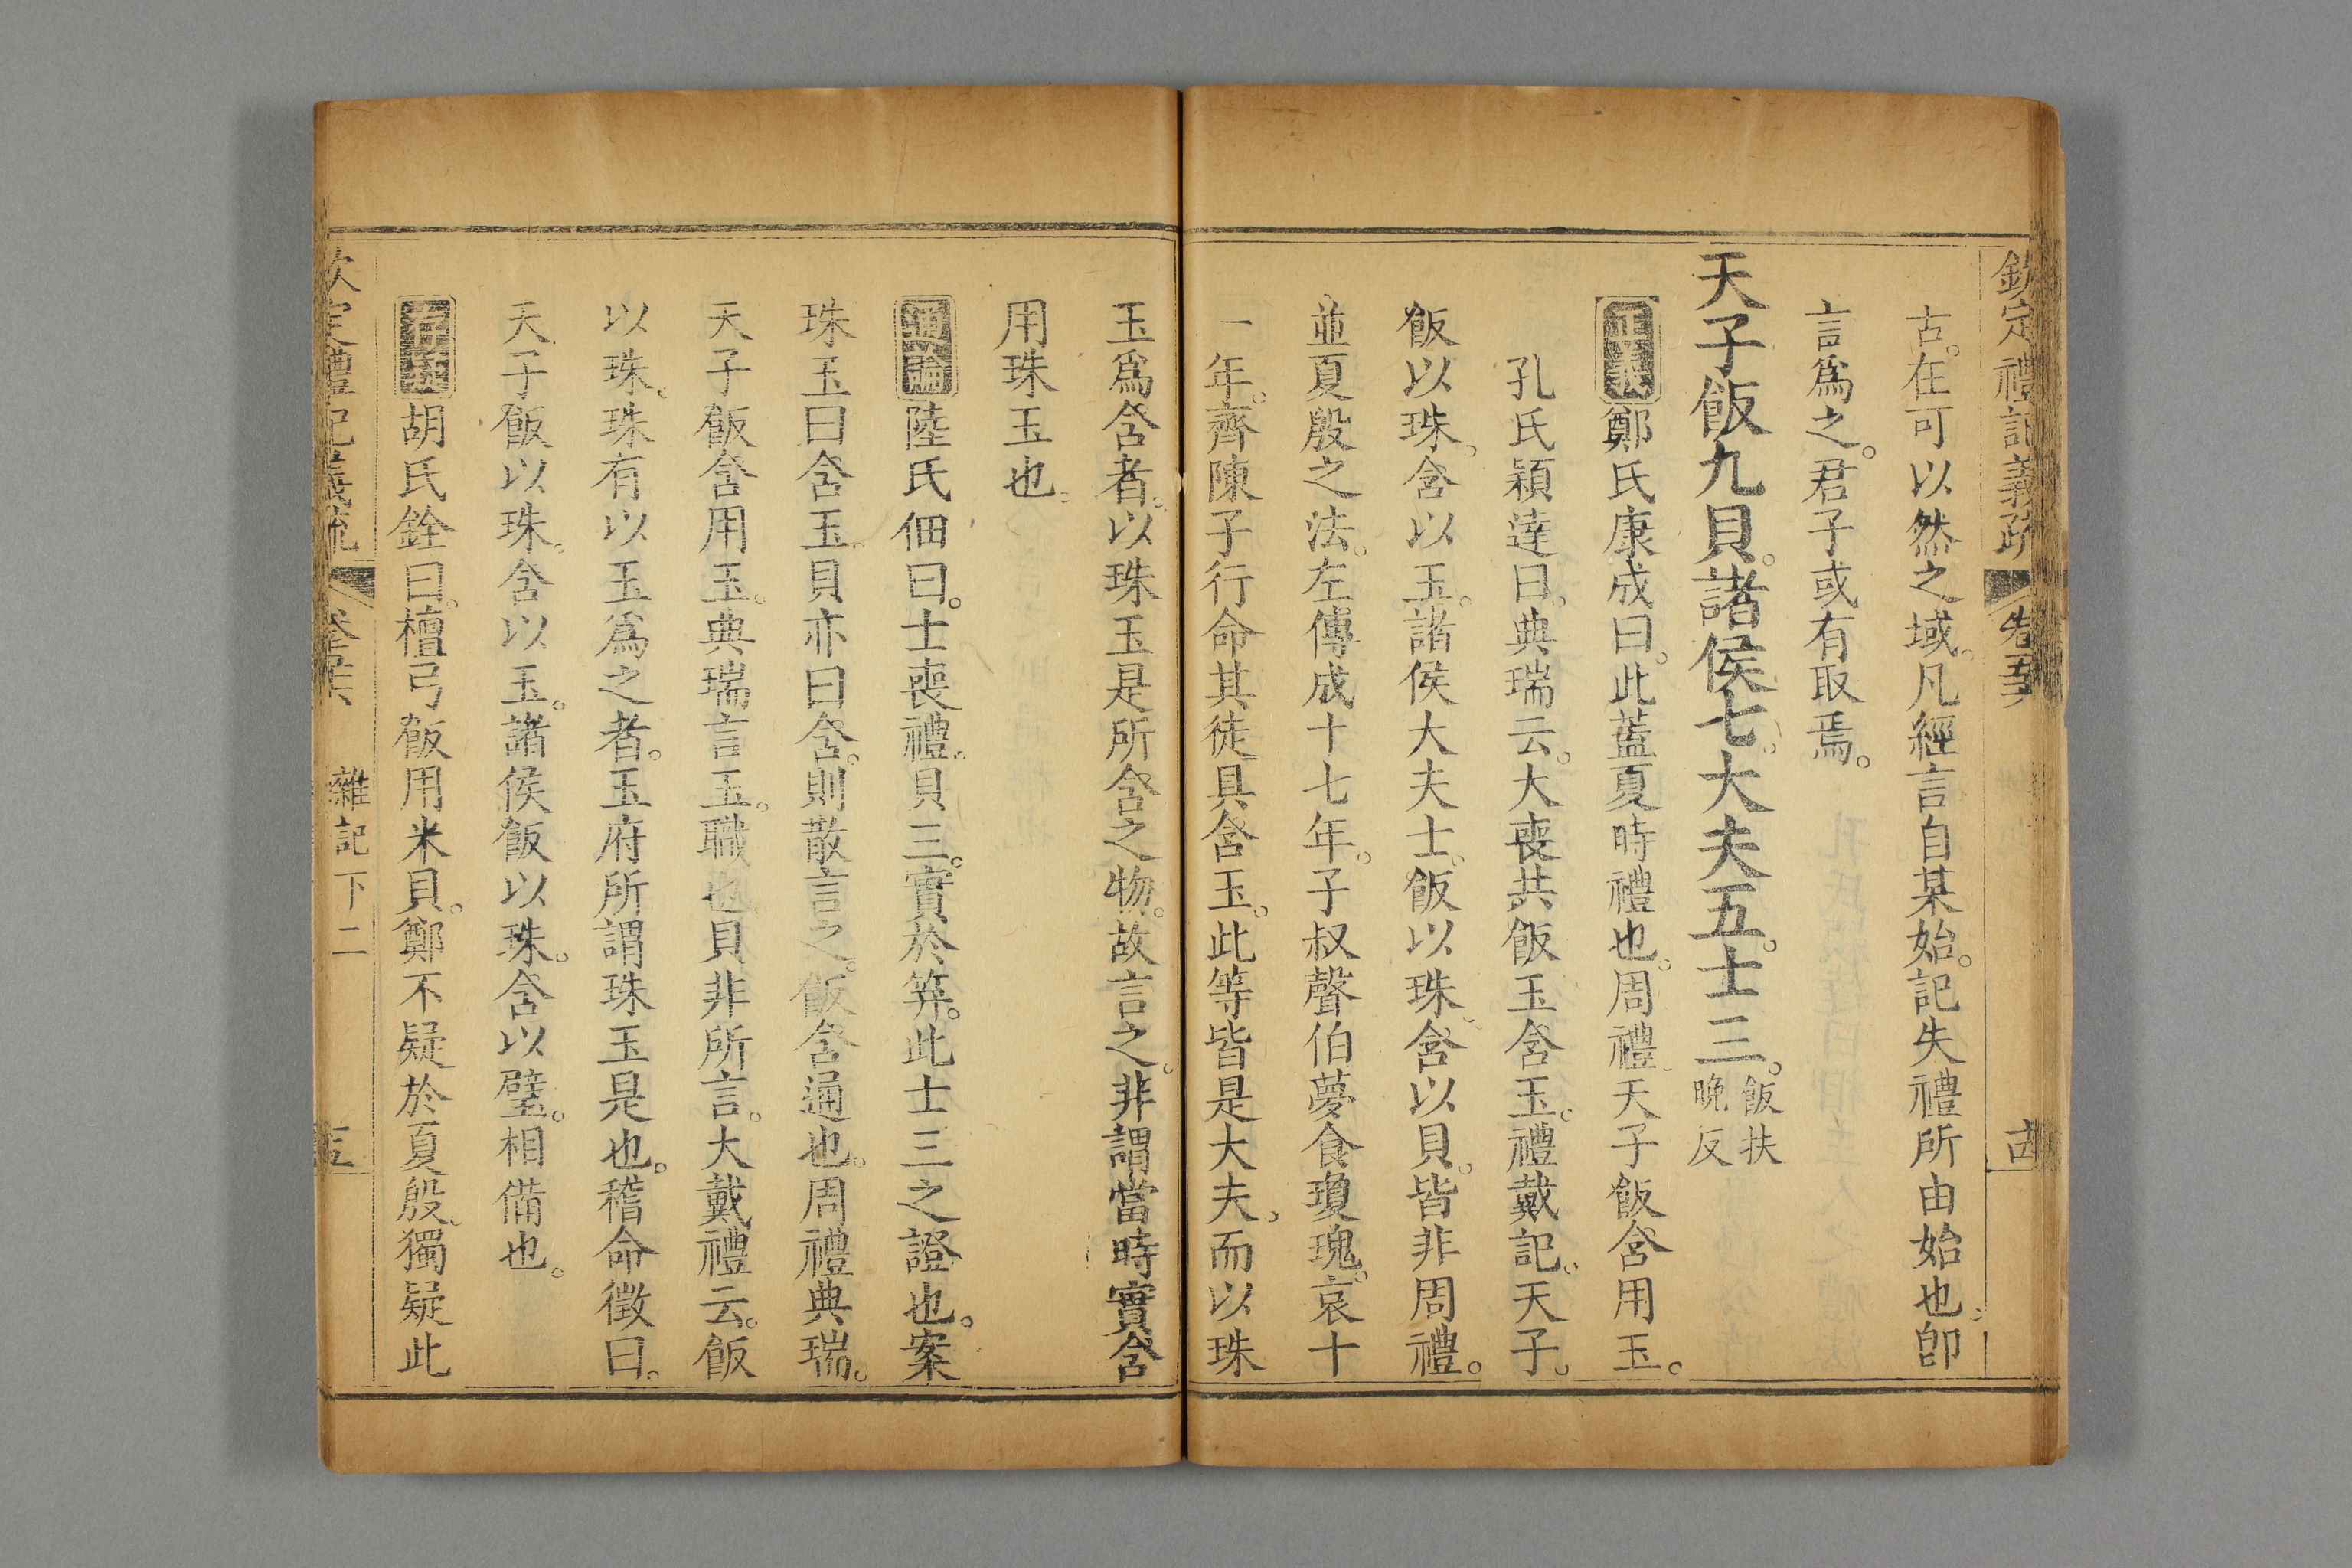 欽定禮記義疏
古在可以然之域。凡經言自某始。記失禮所由始也卽
言爲之。君子或有取焉。
天子飯九貝。諸侯七。大夫五。士三。飯扶晚反
正義鄭氏康成曰。此蓋夏時禮也。周禮天子飯含用玉。
孔氏穎達曰。典瑞云。大喪共飯玉含玉。禮戴記。天子
飯以珠。含以玉。諸侯大夫士。飯以珠。含以貝。皆非周禮。
並夏殷之法。左傳成十七年。子叔聲伯夢食瓊瑰。哀十
一年。齊陳子行命其徒具含玉。此等皆是大夫。而以珠
玉爲含者。以珠玉是所含之物。故言之。非謂當時實含
用珠玉也。
通論陸氏佃曰。士喪禮。貝三。實於笲。此士三之證也。案
珠玉曰含。玉貝亦曰含。則散言之。飯含通也。周禮典瑞。
天子飯含用玉。典瑞言玉。職也貝非所言。大戴禮云。飯
以珠。珠有以玉爲之者。玉府所謂珠玉是也。稽命徵曰。
天子飯以珠。含以玉。諸侯飯以珠。含以璧。相備也。
胡氏銓曰。檀弓飯用米貝。鄭不疑於夏殷。獨疑此
雜記下二